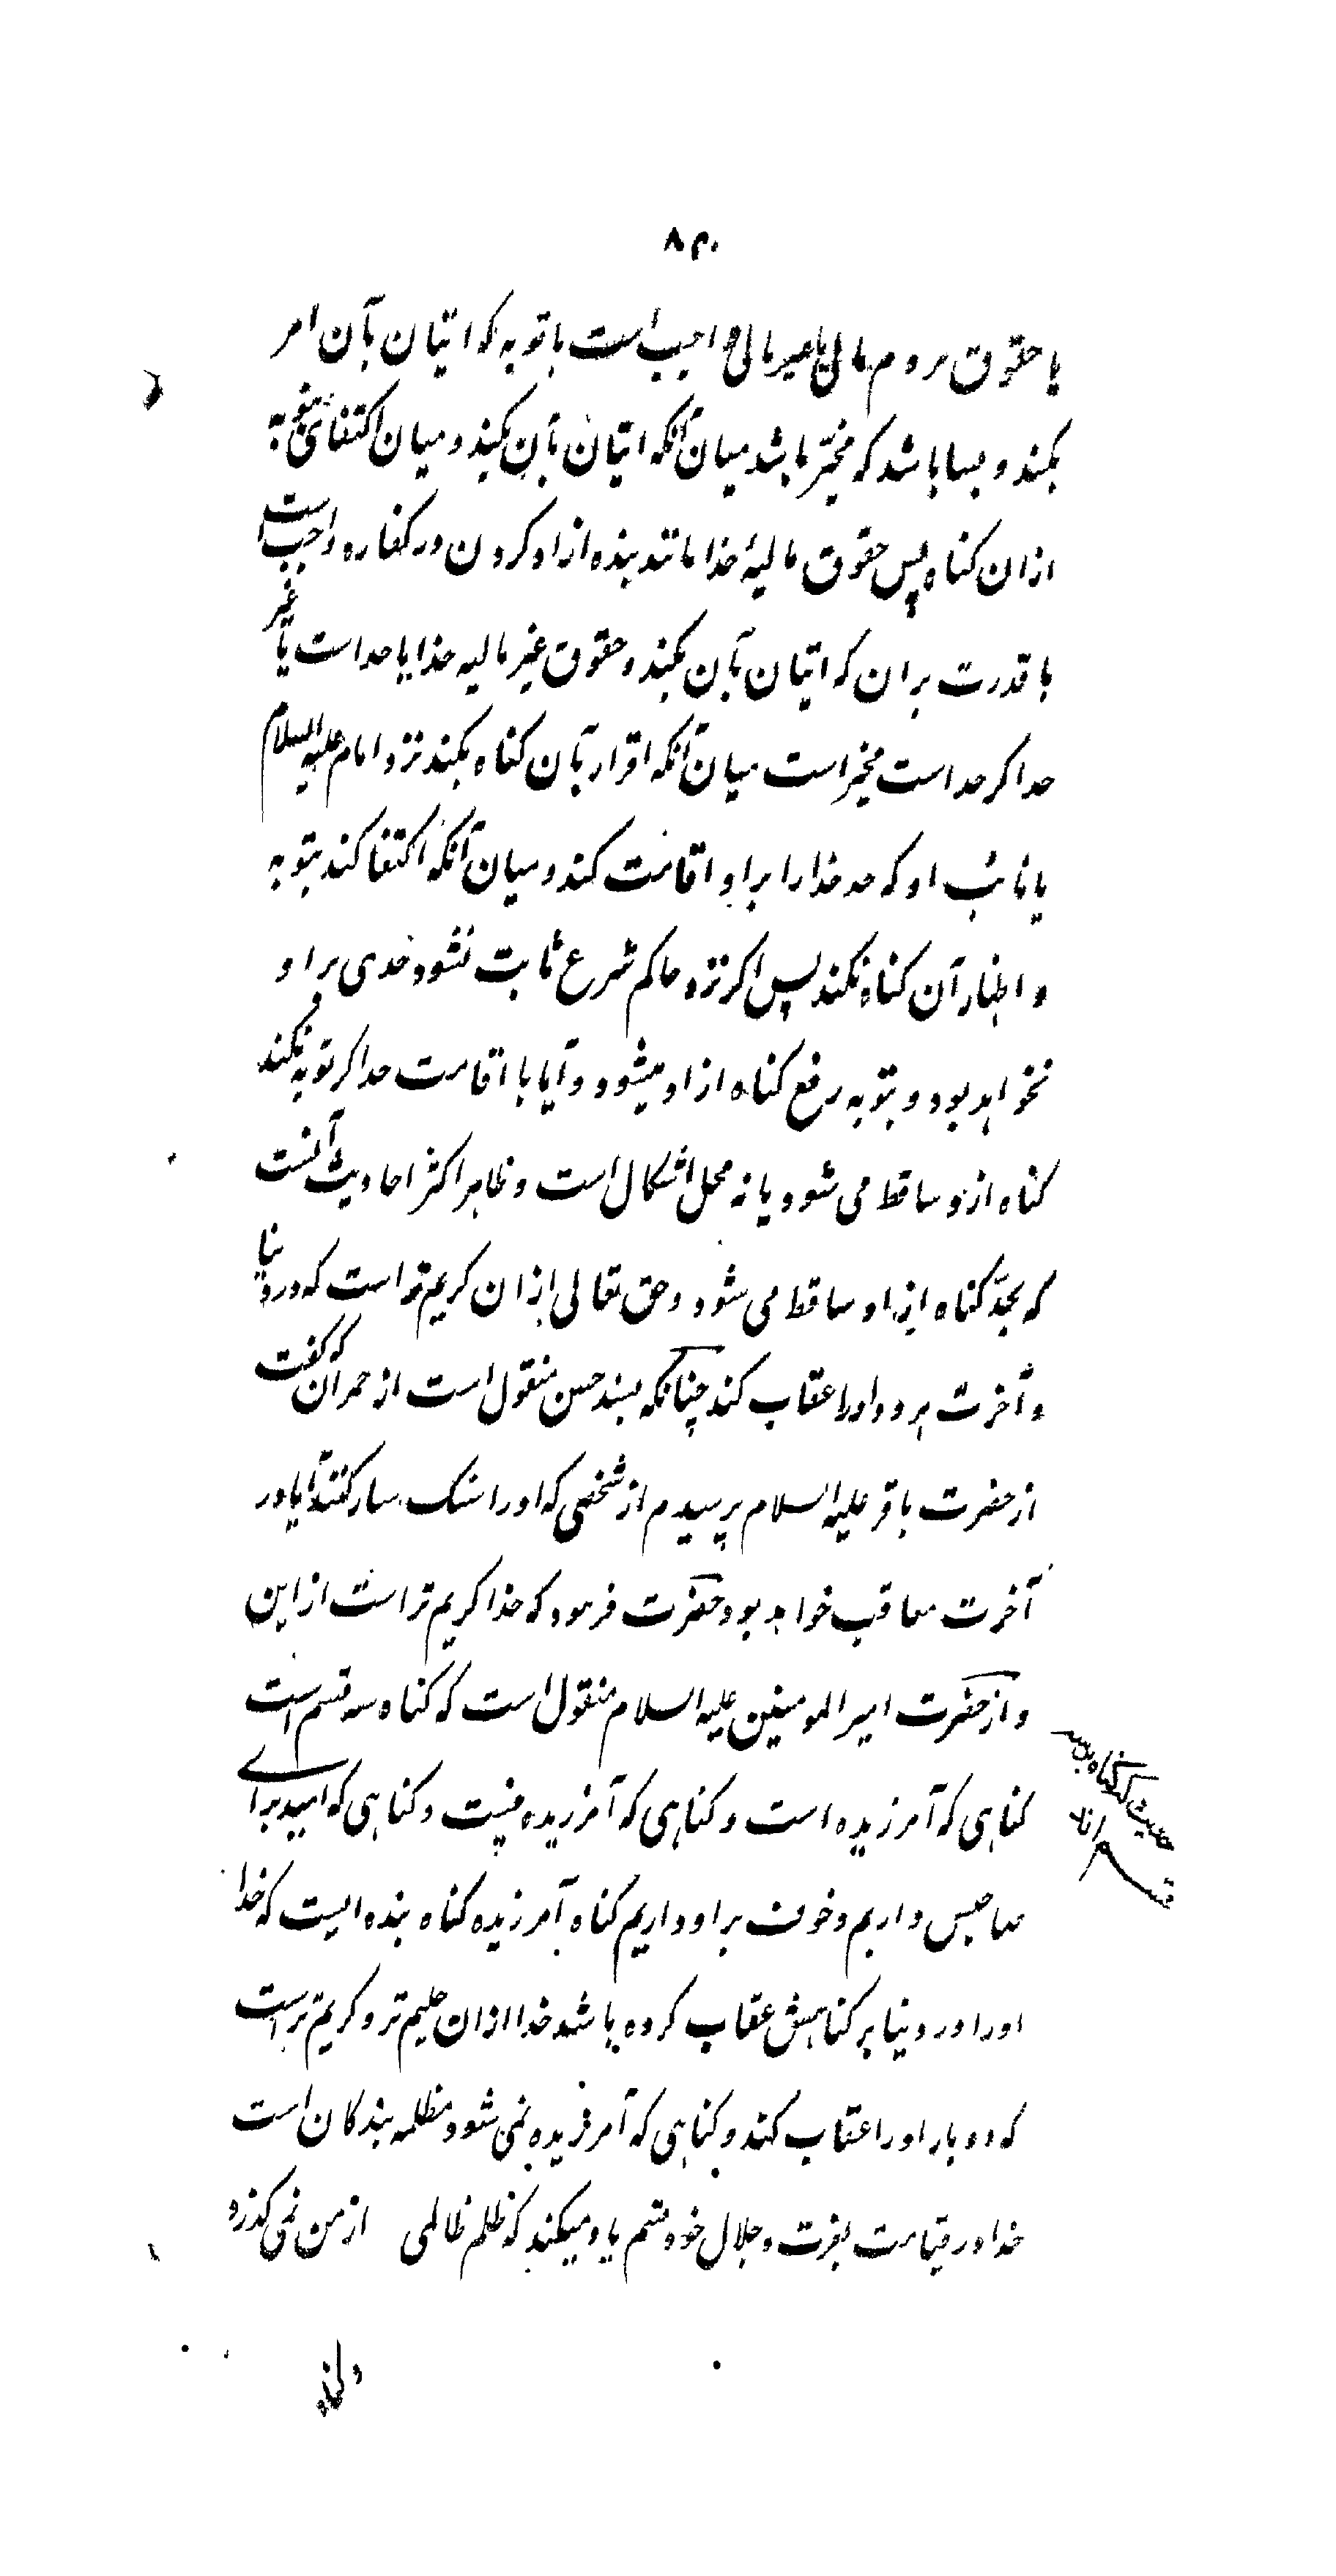 ۸۴۰
یا حقوق مردم مالی یا غیر مالی واجب است با توبه که اتیان بآن امر
بکند و بسا باشد که مخیّر باشد میان آنکه اتیان بآن بکند و میان اکتفای بتوبه
ازان کناه پس حقوق مالیهٔ خدا مانند بنده ازاد کردن در کفاره واجب است
با قدرت بران که اتیان بآن بکند و حقوق غیر مالیه خدا یا حد است یا غیر
حد اکر حد است مخیر است میان آنکه اقرار بآن کناه بکند نزد امام علیه السلام
یا نائب او که حد خدا را برا و اقامت کند و میان آنکه اکتفا کند بتوبه
و اظهار آن کناه نکند پس اکر نزد حاکم شرع ثابت نشود حدی برا و
نخواهد بود و بتوبه رفع کناه از او میشود و آیا با اقامت حد اکر توبه نکند
کناه ازو ساقط می شود یا نه محل اشکال است و ظاهر اکثر احادیث آنست
که بحدّ کناه از او ساقط می شود و حق تعالی ازان کریم تر است که در دنیا
و آخرت هر دو او را عقاب کند چنانکه بسند حسن منقول است از حمران که کفت
از حضرت باقر علیه السلام پرسیدم از شخصی که او را سنکسار کنند آیا در
آخرت معاقب خواهد بود حضرت فرمود که خدا کریم تر است از این
و از حضرت امیر المومنین علیه السلام منقول است که کناه سه قسم است
کناهی که آمرزیده است و کناهی که آمرزیده نیست و کناهی که امید برای
صاحبش داریم و خوف برا و داریم کناه آمرزیده کناه بنده ایست که خدا
او را در دنیا بر کناهش عقاب کرده باشد خدا ازان حلیم تر و کریم تر است
که دو بار او را عقاب کند و کناهی که آمرزیده نمی شود مظلمه بندکان است
خدا در قیامت بعزت و جلال خود قسم یاد میکند که ظلم ظالمی از من نمی کذرد
حدیث که کناه بر سه
قسم اند